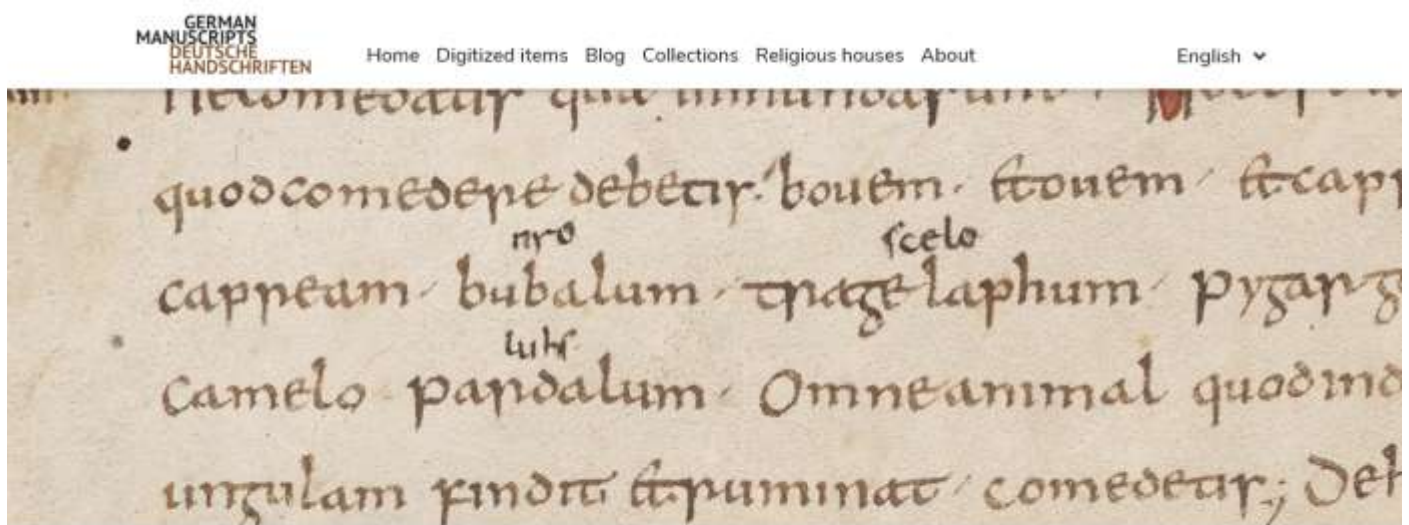 GERMAN
MANUSCRIPTS
DEUTSCHE
HANDSCHRIFTEN
Home Digitized items Blog Collections Religious houses About
English
quod comedere debetis. bovem. & ovem. & cap
nro scelo
capream. bubalum. tragelaphum. pygarg
luhs
Camelo pardalum. Omne animal quod
ungulam findit & ruminat. comedetis; De